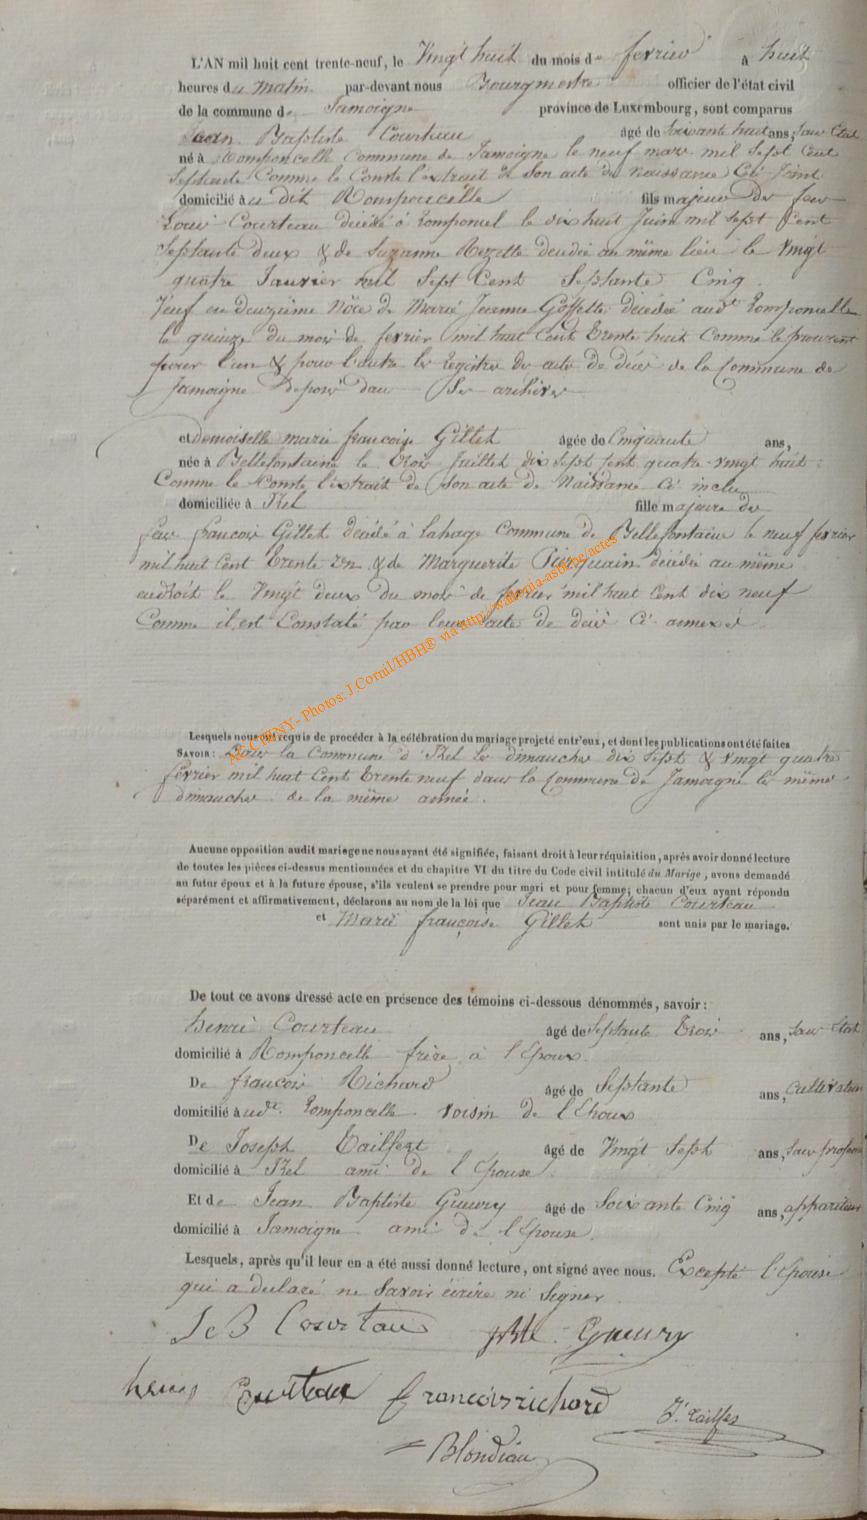 L'AN mil huit cent trente-neuf, le Vingt huit du mois de fevrier à huit
heures du Matin par-devant nous Bourgmestre officier de l'état civil
de la commune de Jamoigne province de Luxembourg, sont comparus
Jean Baptiste Courteau âgé de Soixante huit ans, sans Etat
né à Romponcelle Commune de Jamoigne le neuf mars mil Sept Cent
Septante Comme le Conste l'extrait de Son acte de Naissance Ci Joint
domicilié au dit Romponcelle fils majeur de feu
Louis Courteau décédé à Romponcel le dix huit Juin mil Sept Cent
Septante deux & de Suzanne Rezette decedée au même lieu le Vingt
quatre Janvier mil Sept Cent Septante Cinq.
Veuf en deuzième Nôce de Marie Jeanne Goffette décédée audt Romponcelle
le quinze du mois de fevrier mil huit Cent Trente huit Comme le prouvent
pour l'un & pour l'autre les registres des acte de décès de la Commune de
Jamoigne deposé dans Ses archives
et demoiselle marie francoise Gillet âgée de Cinquante ans,
née à Bellefontaine le Trois Juillet dix Sept Cent quatre-vingt huit :
Comme le Conste l'extrait de Son acte de Naissance Ci inclu
domiciliée à Izel fille majeure de
feu francois Gillet décédé à Lahage Commune de Bellefontaine le neuf fevrier
mil huit Cent Trente un & de Marguerite décédée au même
endroit le Vingt deux du mois de fevrier mil huit Cent dix neuf
Comme il est Constaté par leurs acte de décès Ci annexés.
AE CHINY- Photos:J.Cornil/HBH® via http://wallonia-asbl.org/actes
Lesquels nous ont requis de procéder à la célébration du mariage projeté entr'eux, et dont les publications ont été faites
SAVOIR : Dans la Commune d'Izel les dimanches dix Sept & vingt quatre
fevrier mil huit Cent Trente neuf dans la Commune de Jamoigne les mêmes
dimanches de la même année.
Aucune opposition audit mariage ne nous ayant été signifiée, faisant droit à leur réquisition, après avoir donné lecture
de toutes les pièces ci-dessus mentionnées et du chapitre VI du titre du Code civil intitulé du Marige, avons demandé
au futur époux et à la future épouse, s'ils veulent se prendre pour mari et pour femme; chacun d'eux ayant répondu
séparément et affirmativement, déclarons au nom de la loi que Jean Baptiste Courteau
et Marie françoise Gillet sont unis par le mariage.
De tout ce avons dressé acte en présence des témoins ci-dessous dénommés, savoir :
henri Courteau âgé de Septante Trois ans, sans Etat
domicilié à Romponcelle frère à l'Epoux.
De francois Richard âgé de Septante ans, Cultivateur
domicilié audt. Romponcelle voisin de l'Epoux
De Joseph Tailfert âgé de Vingt Sept ans, sans profession
domicilié à Izel ami de l'Epouse
Et de Jean Baptiste Gueury âgé de Soixante Cinq ans, appariteur
domicilié à Jamoigne ami de l'Epouse.
Lesquels, après qu'il leur en a été aussi donné lecture, ont signé avec nous. Excepté l'épouse
qui a declaré ne Savoir écrire ni Signer.
J B Courtau
Gueury
henry Courteau francois richard
Blondiau